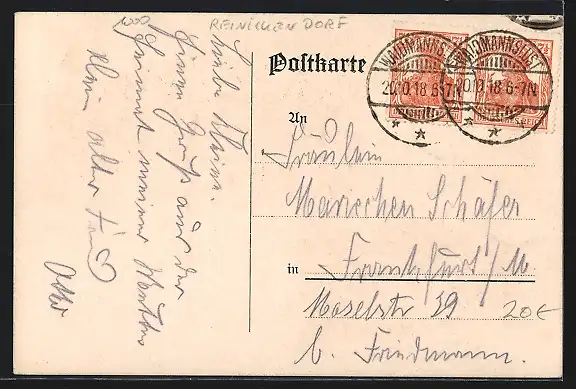 WOO
REINICKENDORF
Liebe Kleine.
Einen Gruß aus der
Heimat meiner Mutter
Dein alter Freund
Otto
Postkarte
WAIDMANNSLUST
20.10.18.6-7N
WAIDMANNSLUST
20.10.18.6-7N
An
Fräulein
Mariechen Schäfer
in Frankfurt/M.
Moselstr 39
20€
b. Friedmann.